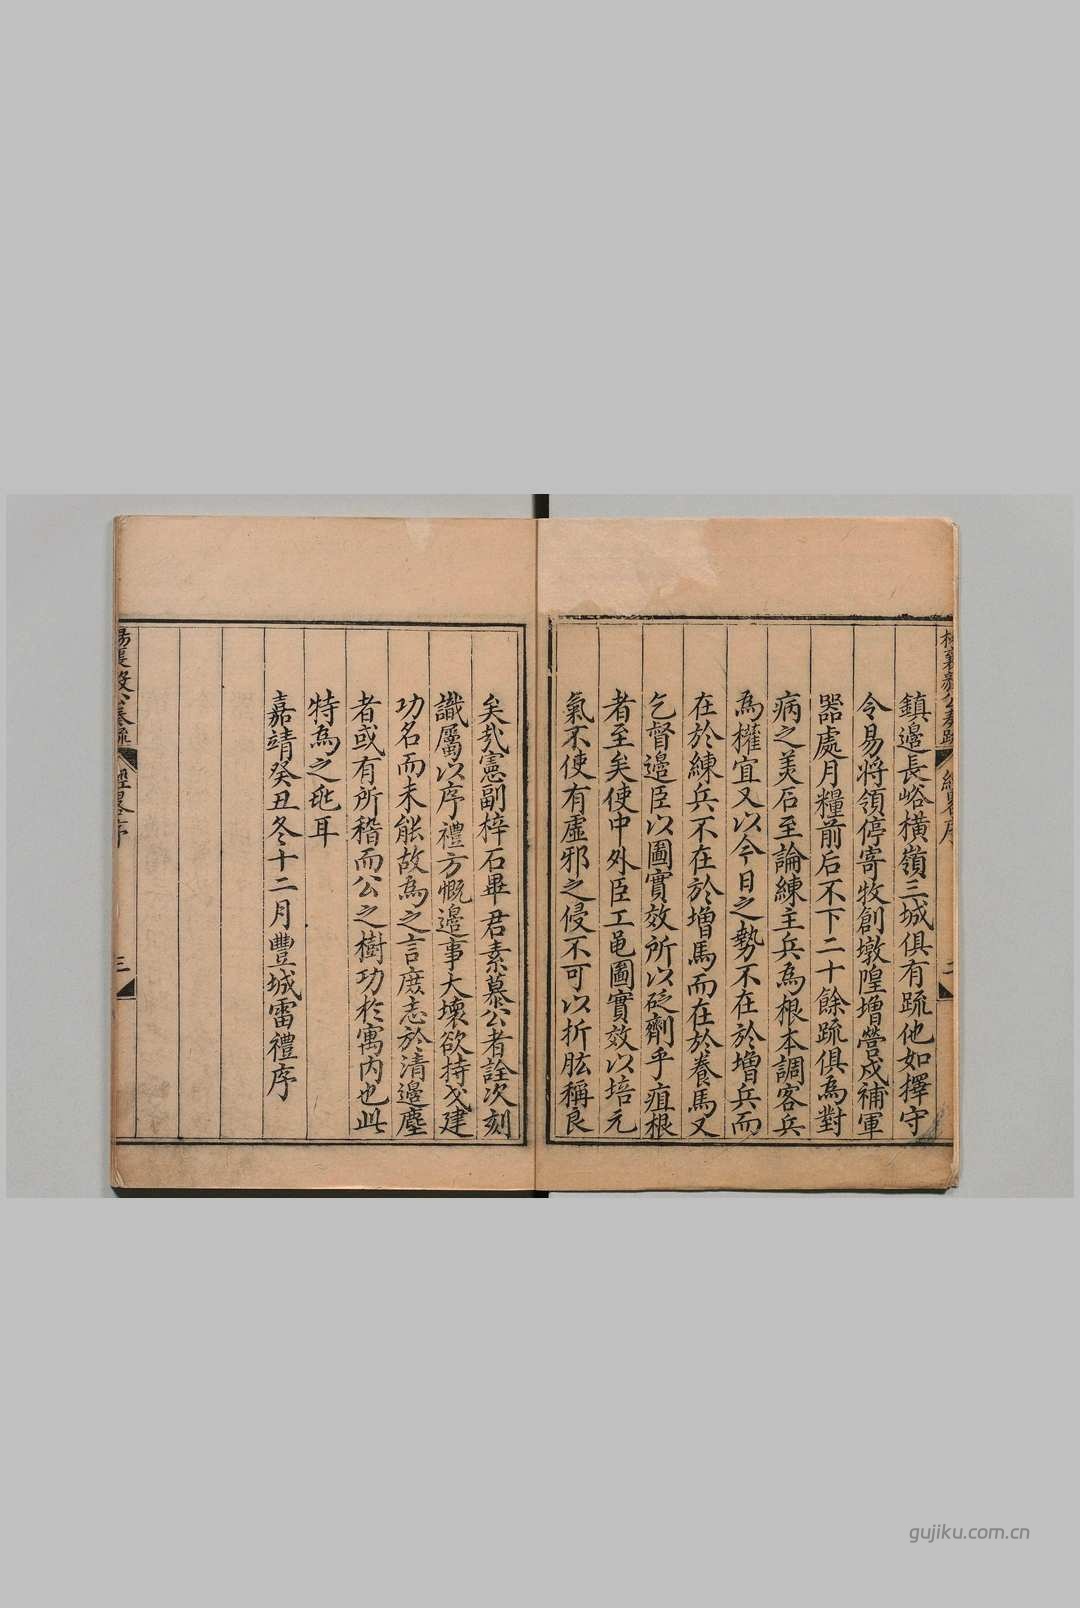 鎮邊長峪橫嶺三城俱有䟽他如擇守
令易將領停寄牧創墩隍增營戍補軍
器處月糧前后不下二十餘䟽俱為對
病之美石至論練主兵為根本調客兵
為權宜又以今日之勢不在於增兵而
在於練兵不在於增馬而在於養馬又
乞督邊臣以圖實效所以砭劑乎疽根
者至矣使中外臣工黽圖實效以培元
氣不使有虛邪之侵不可以折肱稱良
矣㢤憲副梓石畢君素慕公者詮次刻
識屬以序禮方慨邊事大壞欲持戈建
功名而未能故為之言庻志於清邊塵
者或有所稽而公之樹功於寓內也此
特為之兆耳
嘉靖癸丑冬十二月豐城雷禮序
三
gujiku.com.cn